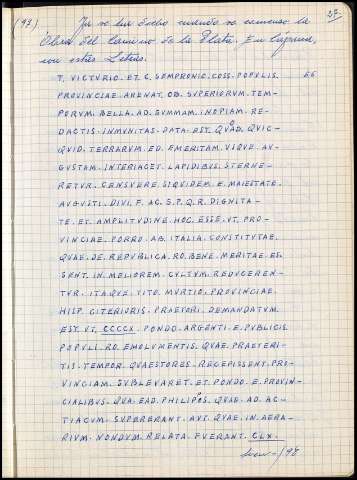 (93) Ya se ha dicho cuando se comenso la
Obra del Camino de la Plata. En lapiana,
con estas Letras.
T. VICTVRIO. ET. C. SEMPRONIO. COSS. POPVLIS.
PROVINCIAE. ARENAT. OB. SUPERIORVM. TEM-
PORVM. BELLA. AD. SUMMAM. INOPIAM. RE-
DACTIS. INMVNITAS. DATA. EST. QVOD. QVIC-
QVID. TERRARVM. ED. EMERITAM. VIQVE. AV-
GVSTAM. INTERIACET. LAPIDIBVS. STERNE-
RETVR. CENSVERE. SIQVIDEM. E. MAIESTATE.
AVGVSTI. DIVI. F. AC. S. P. Q. R. DIGNITA-
TE. ET. AMPLITVDINE. HOC. ESSE. VT. PRO-
VINCIAE. PORRO. AB. ITALIA. CONSTITVTAE.
QVAE. DE. REPVBLICA. RO. BENE. MERITAE. ES-
SENT. IN. MELIOREM. CVLTVM. REDVCEREN-
TVR. ITAQVE. TITO. MVRTIO. PROVINCIAE.
HISP. CITERIORIS. PRAETORI. DEMANDATVM.
EST. VT. CCCCX. PONDO. ARGENTI. E. PVBLICIS.
POPVLI. RO. EMOLVMENTIS. QVAE. PRAETERI-
TIS. TEMPOR. QVAESTORES. RECEPISSENT. PRO-
VINCIAM. SVBLEVARET. ET. PONDO. E. PROVIN-
CIALIBVS. QVA. EAD. PHILIPPOS. QVAE. AD. AC-
TIACVM. SVPERERANT. AVT. QVAE. IN. AERA-
RIVM. NONDVM. RELATA. FVERANT. CLX.